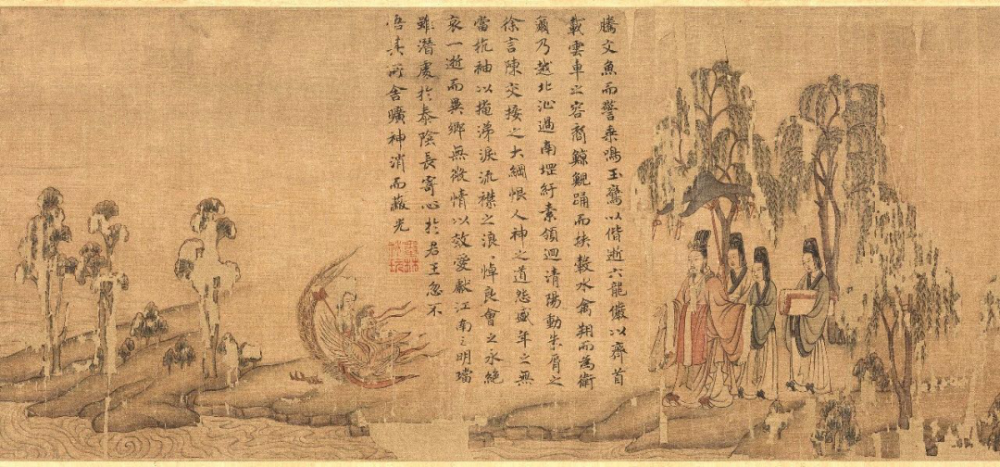 騰文魚而警乘鳴玉鸞以偕逝六龍儼以齊首
載雲車之容裔鯨鯢踴而挾轂水禽翔而為衛
爾乃越北沚過南堽紆素領迴清陽動朱脣之
徐言陳交接之大綱恨人神之道怨盛年之無
當抗袖以掩涕淚流襟之浪〻悼良會之永絕
哀一逝而異鄉無微情以效愛獻江南之明璫
雖潛處於泰陰長寄心於君王忽不
悟其所舍曠神消而蔽光